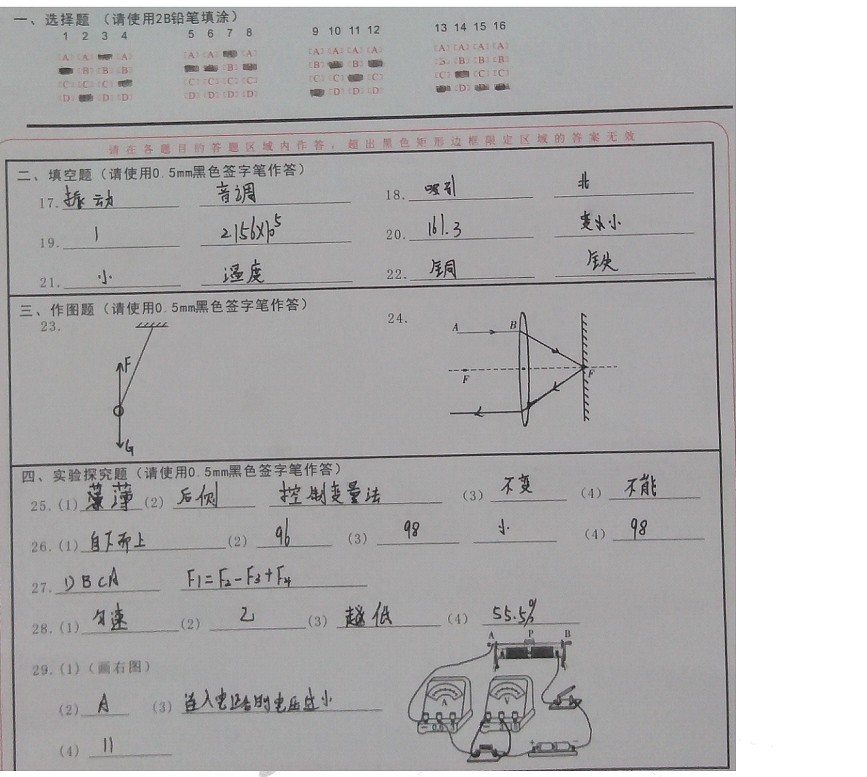 一、选择题 (请使用2B铅笔填涂)
1 2 3 4 5 6 7 8 9 10 11 12 13 14 15 16
请在各题目的答题区域内作答，超出黑色矩形边框限定区域的答案无效
二、填空题（请使用0.5mm黑色签字笔作答）
17. 振动 音调 18. 吸引 北
19. 1 2.156×10⁵ 20. 161.3 变小
21. 小 温度 22. 铜 铁
三、作图题（请使用0.5mm黑色签字笔作答）
23. 24.
F G A B F F
四、实验探究题（请使用0.5mm黑色签字笔作答）
25. (1) 薄 (2) 后侧 控制变量法 (3) 不变 (4) 不能
26. (1) 自下而上 (2) 96 (3) 98 小 (4) 98
27. DBCA F₁=F₂-F₃+F₄
28. (1) 匀速 (2) 乙 (3) 越低 (4) 55.5%
29. (1)（画右图）
A P B
A V
(2) A (3) 连入电路的电压过小
(4) 11